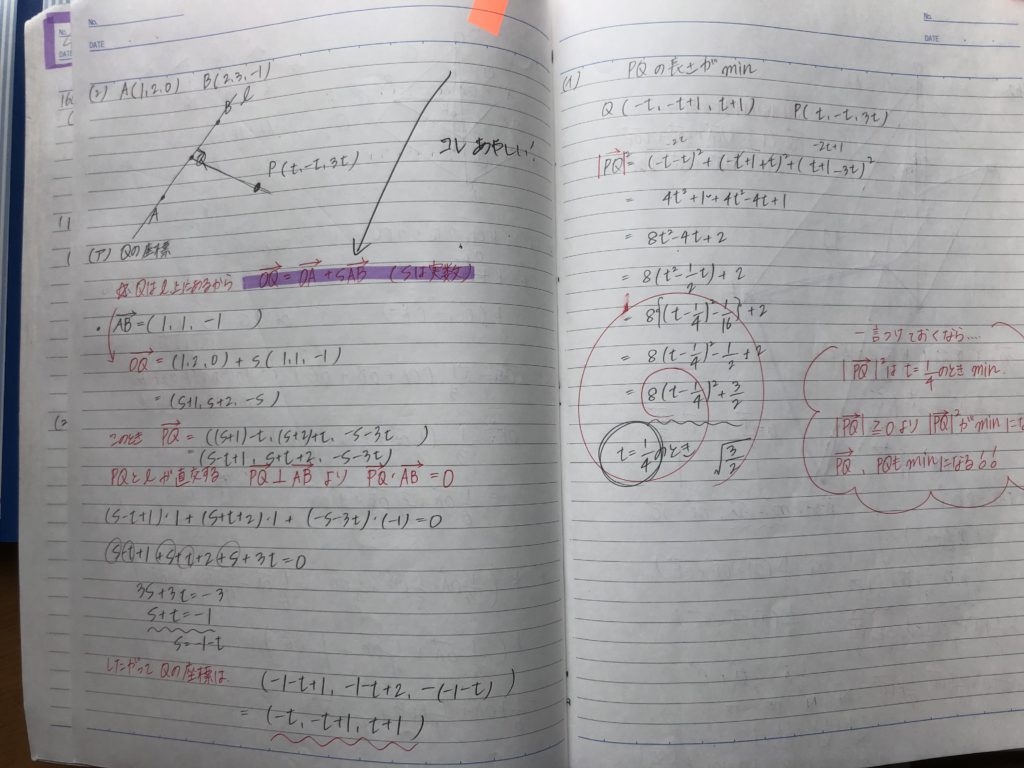 No.
DATE
(2) A(1,2,0) B(2,3,-1)
B l
P(t,-t,3t)
A
コレあやしい!
(ア) Qの座標
点Qはl上にあるから OQ = OA + sAB (sは実数)
・AB = (1, 1, -1 )
OQ = (1,2,0) + s(1,1,-1)
= (s+1, s+2, -s)
このとき PQ = ((s+1)-t, (s+2)+t, -s-3t )
= (s-t+1, s+t+2, -s-3t)
PQとlが直交する PQ⊥AB より PQ・AB = 0
(s-t+1)・1 + (s+t+2)・1 + (-s-3t)・(-1) = 0
s-t+1+s+t+2+s+3t=0
3s+3t=-3
s+t=-1
s=-1-t
したがって Qの座標は (-1-t+1, -1-t+2, -(-1-t) )
= (-t, -t+1, t+1 )
No.
DATE
(イ) PQの長さがmin
Q(-t, -t+1, t+1) P(t, -t, 3t)
-2t -2t+1
|PQ|² = (-t-t)²+(-t+1+t)²+(t+1-3t)²
= 4t²+1+4t²-4t+1
= 8t²-4t+2
= 8(t²-1/2t)+2
= 8{(t-1/4)²-1/16}+2
= 8(t-1/4)²-1/2+2
= 8(t-1/4)²+3/2
t=1/4のとき √3/2
一言つけておくなら....
|PQ|²は t=1/4のとき min.
|PQ|≧0より |PQ|²がminに
PQ、PQもminになる